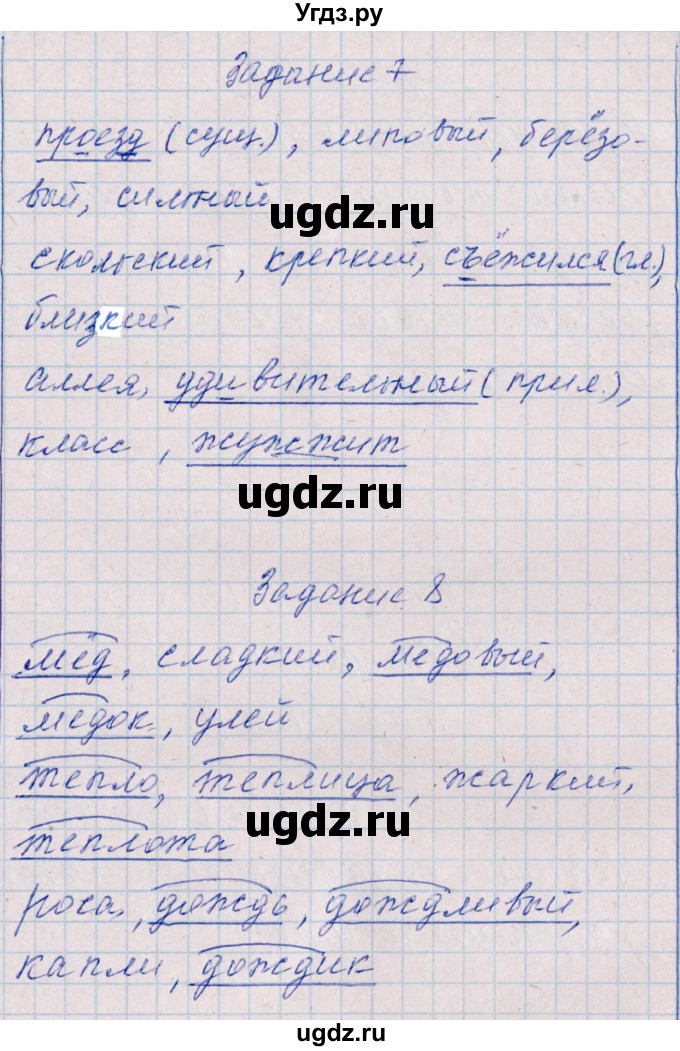 Угдз.ру
Задание 7
проезд (сущ.), липовый, берёзо-
вый, сильный
ugdz.ru
скользкий, крепкий, съёжился (гл.),
близкий
аллея, удивительный (прил.),
класс, жужжит
ugdz.ru
Задание 8
мёд, сладкий, медовый,
медок, улей
тепло, теплица, жаркий,
ugdz.ru
теплота
роса, дождь, дождливый,
капли, дождик
ugdz.ru